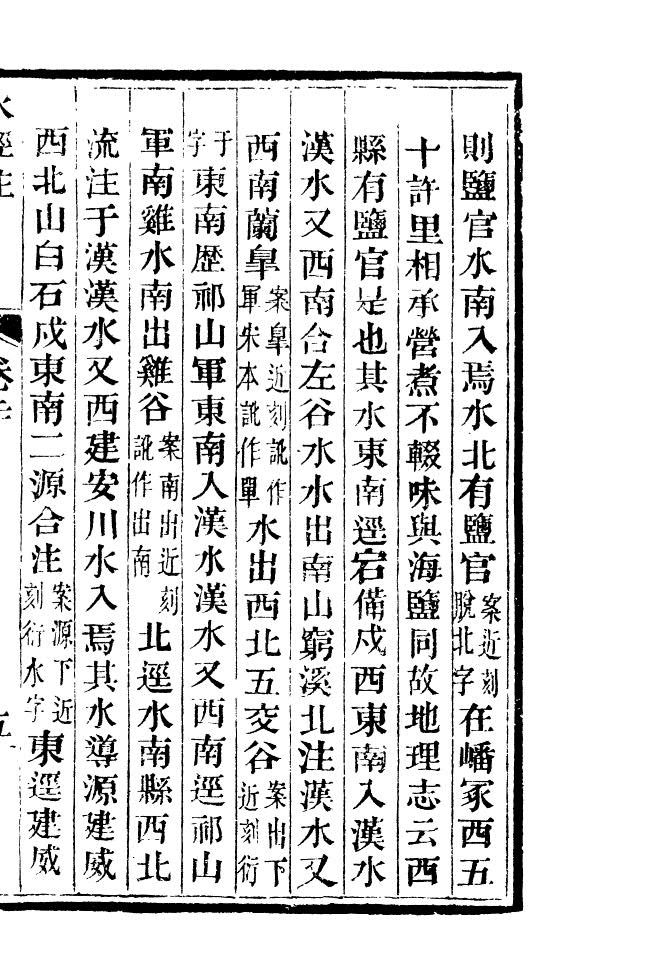 則鹽官水南入焉水北有鹽官案近刻脫北字在嶓冢西五
十許里相承營煮不輟味與海鹽同故地理志云西
縣有鹽官是也其水東南逕宕備戍西東南入漢水
漢水又西南合左谷水水出南山窮溪北注漢水又
西南蘭皐案皐近刻訛作軍朱本訛作單水出西北五交谷案出下近刻衍
于字東南歷祁山軍東南入漢水漢水又西南逕祁山
軍南雞水南出雞谷案南出近刻訛作出南北逕水南縣西北
流注于漢漢水又西建安川水入焉其水導源建威
西北山白石戍東南二源合注案源下近刻衍水字東逕建威
水經注
卷二十